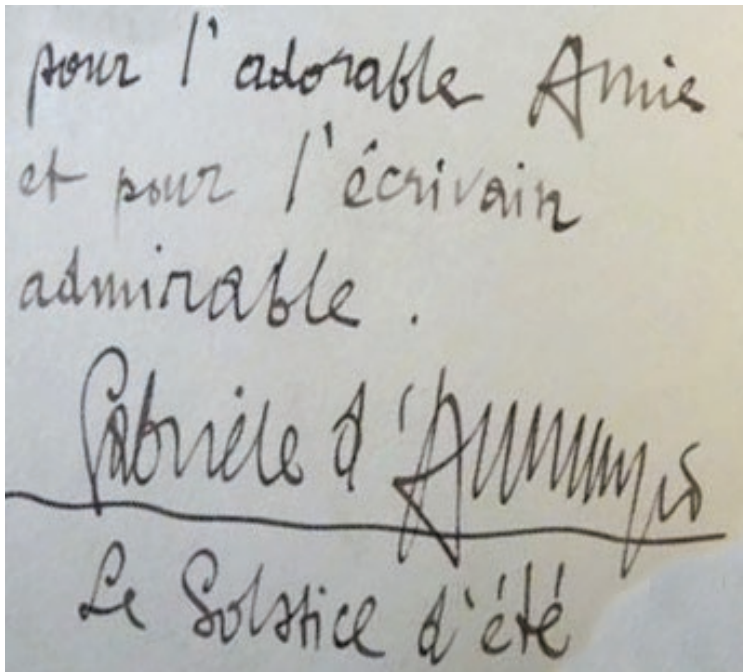 pour l'adorable Amie
et pour l'écrivain
admirable.
Gabriele d'Annunzio
Le Solstice d'été